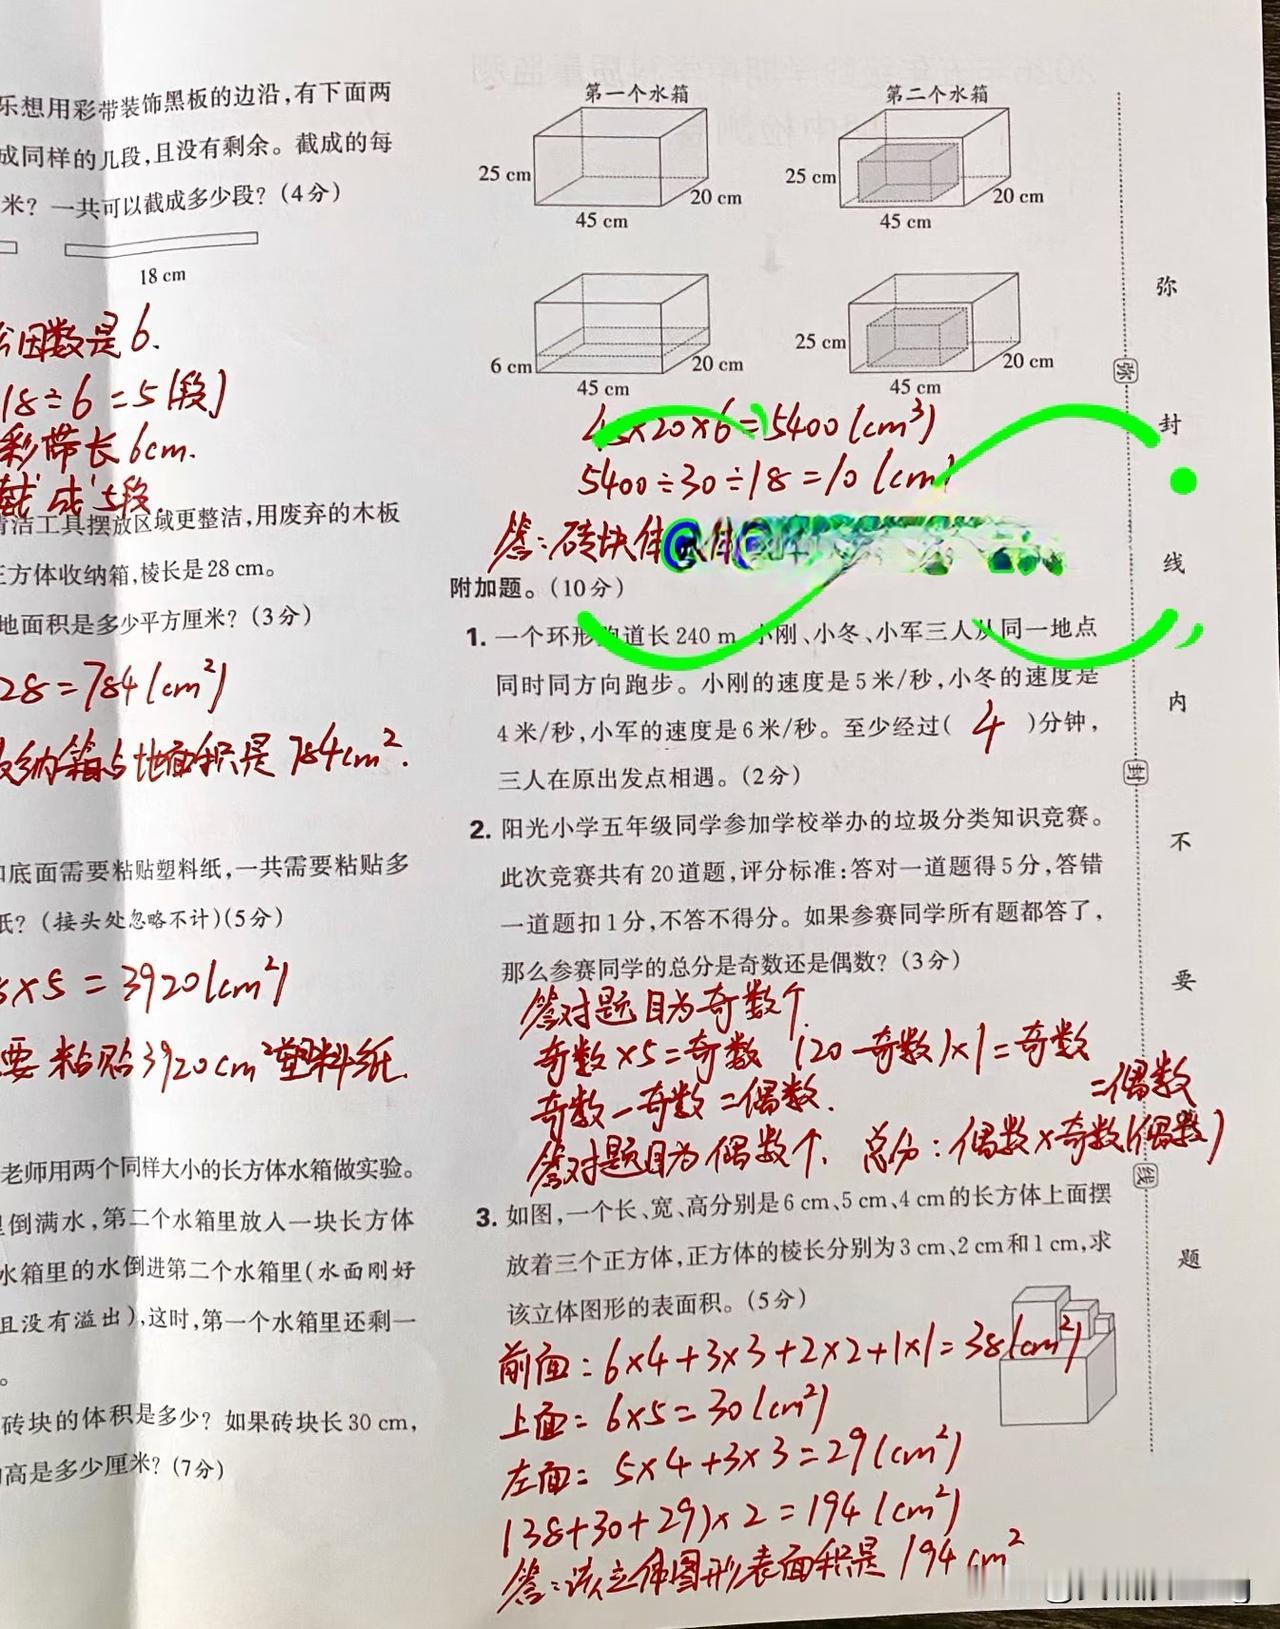 乐想用彩带装饰黑板的边沿,有下面两
成同样的几段,且没有剩余。截成的每
米?一共可以截成多少段?(4分)
18 cm
因数是6.
18÷6=5(段)
彩带长6cm.
截成5段.
清洁工具摆放区域更整洁,用废弃的木板
正方体收纳箱,棱长是28 cm。
地面积是多少平方厘米?(3分)
28=784(cm²)
纳箱占地面积是784cm².
底面需要粘贴塑料纸,一共需要粘贴多
纸?(接头处忽略不计)(5分)
×5=3920(cm²)
要粘贴3920cm²塑料纸.
老师用两个同样大小的长方体水箱做实验。
倒满水,第二个水箱里放入一块长方体
水箱里的水倒进第二个水箱里(水面刚好
且没有溢出),这时,第一个水箱里还剩一
。
砖块的体积是多少?如果砖块长30 cm,
高是多少厘米?(7分)
第一个水箱 第二个水箱
25 cm 20 cm 45 cm
25 cm 20 cm 45 cm
6 cm 20 cm 45 cm
25 cm 20 cm 45 cm
45×20×6=5400(cm³)
5400÷30÷18=10(cm)
答:砖块体
附加题。(10分)
1. 一个环形跑道长240 m,小刚、小冬、小军三人从同一地点
同时同方向跑步。小刚的速度是5米/秒,小冬的速度是
4米/秒,小军的速度是6米/秒。至少经过( 4 )分钟,
三人在原出发点相遇。(2分)
2. 阳光小学五年级同学参加学校举办的垃圾分类知识竞赛。
此次竞赛共有20道题,评分标准:答对一道题得5分,答错
一道题扣1分,不答不得分。如果参赛同学所有题都答了,
那么参赛同学的总分是奇数还是偶数?(3分)
答对题目为奇数个.
奇数×5=奇数 (20-奇数)×1=奇数
奇数-奇数=偶数.
=偶数
答对题目为偶数个. 总分:偶数×奇数(偶数)
3. 如图,一个长、宽、高分别是6 cm、5 cm、4 cm的长方体上面摆
放着三个正方体,正方体的棱长分别为3 cm、2 cm和1 cm,求
该立体图形的表面积。(5分)
前面:6×4+3×3+2×2+1×1=38(cm²)
上面=6×5=30(cm²)
左面=5×4+3×3=29(cm²)
(38+30+29)×2=194(cm²)
答:该立体图形表面积是194cm²
弥
封
线
内
不
要
题
弥
封
线